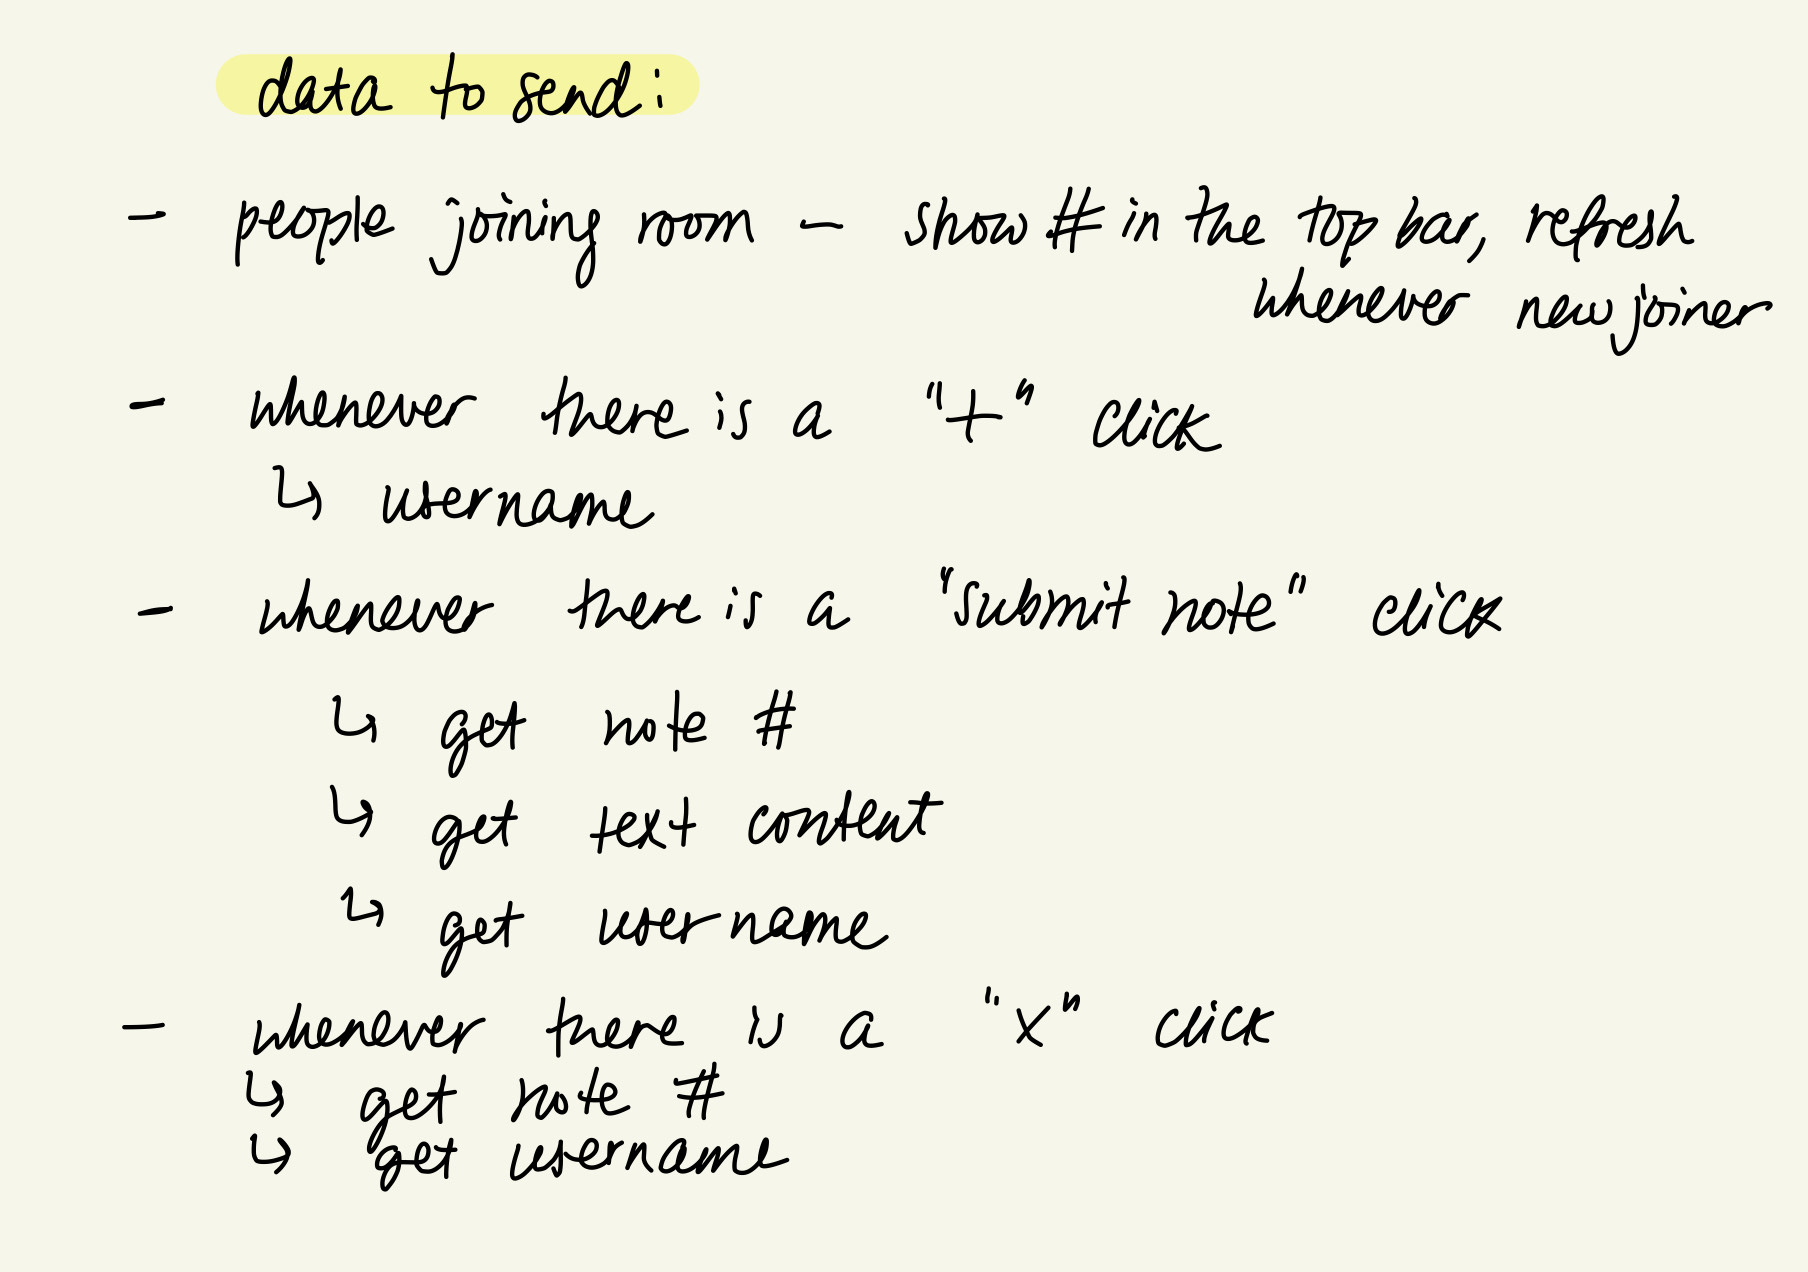 data to send:
- people joining room - show # in the top bar, refresh
whenever new joiner
- whenever there is a "+" click
↳ username
- whenever there is a "submit note" click
↳ get note #
↳ get text content
↳ get username
- whenever there is a "x" click
↳ get note #
↳ get username